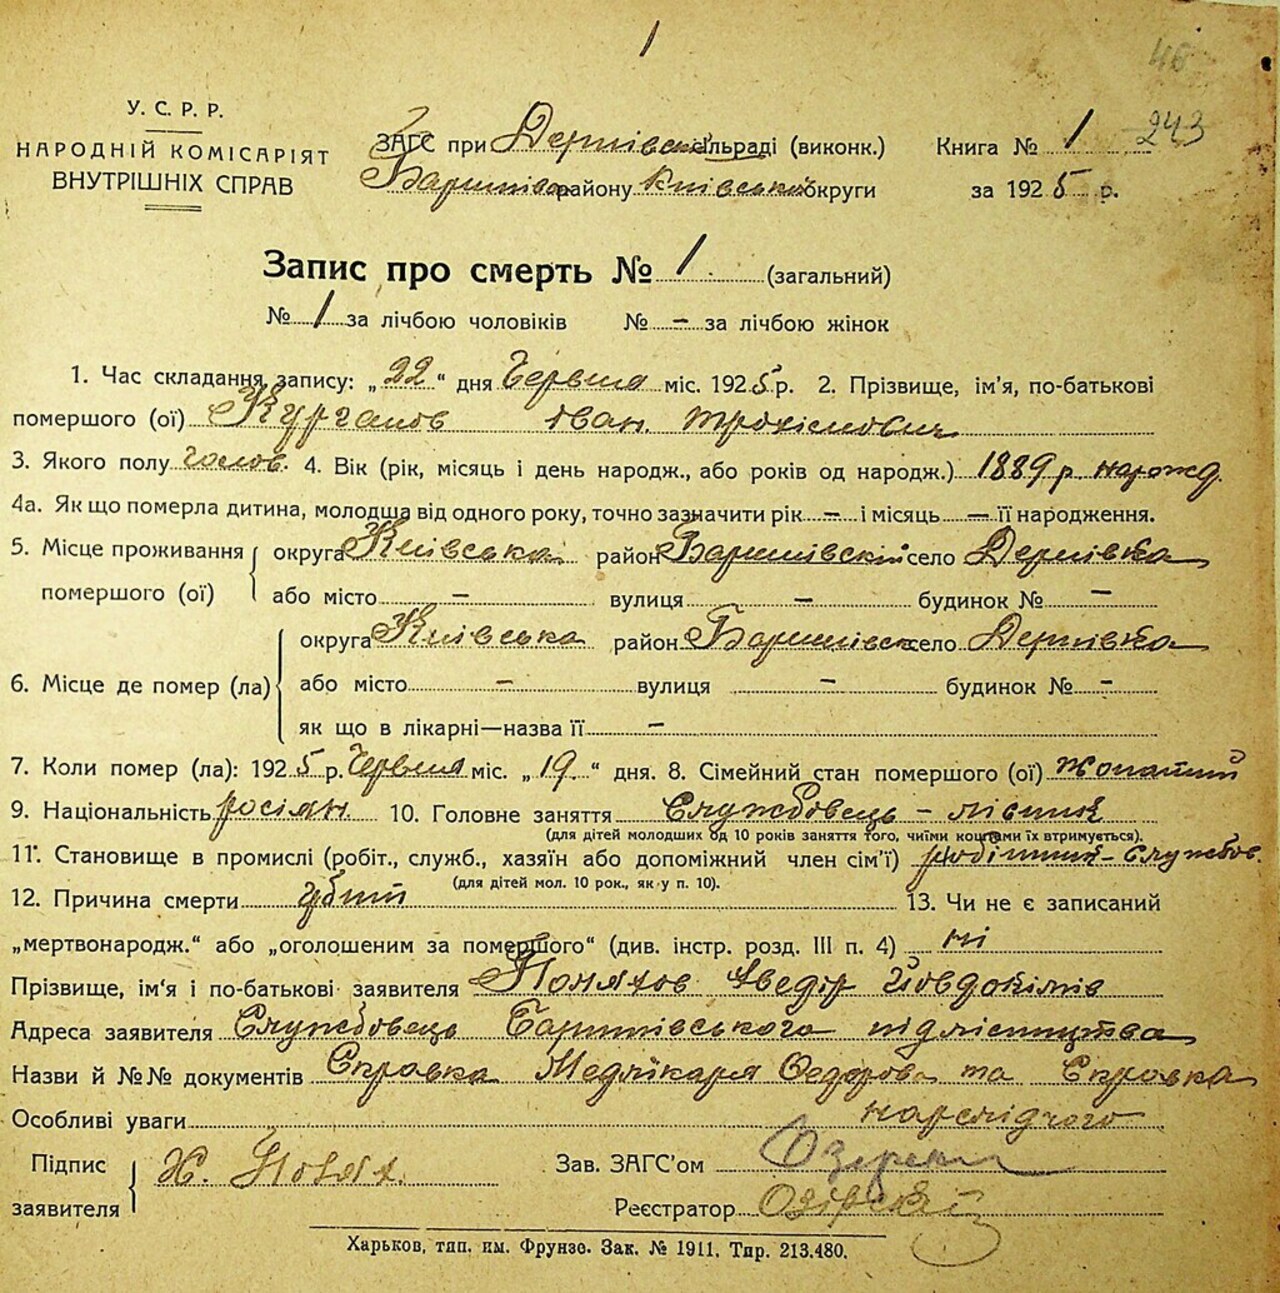 1
46
У. С. Р. Р.
НАРОДНІЙ КОМІСАРІЯТ
ВНУТРІШНІХ СПРАВ
ЗАГС при Дернівській сільраді (виконк.)
Баришівськ району Київської округи
Книга № 1 243
за 1925 р.
Запис про смерть № 1 (загальний)
№ 1 за лічбою чоловіків № – за лічбою жінок
1. Час складання запису: „22“ дня Червня міс. 1925 р. 2. Прізвище, ім’я, по-батькові
помершого (ої) Курганов Іван Трохімович
3. Якого полу чолов. 4. Вік (рік, місяць і день народж., або років од народж.) 1889 р. нарожд.
4а. Як що померла дитина, молодша від одного року, точно зазначити рік – і місяць – її народження.
5. Місце проживання помершого (ої) округа Київська район Баришівскій село Дернівка
або місто – вулиця – будинок № –
6. Місце де помер (ла) округа Київська район Баришівск село Дернівка
або місто – вулиця – будинок № –
як що в лікарні—назва її –
7. Коли помер (ла): 1925 р. Червня міс. „19“ дня. 8. Сімейний стан помершого (ої) Жонатий
9. Національність росіян. 10. Головне заняття Службовець – лісник
(для дітей молодших од 10 років заняття того, чиїми коштами їх втримується).
11. Становище в промислі (робіт., служб., хазяїн або допоміжний член сім’ї) робітник – службов.
(для дітей мол. 10 рок., як у п. 10).
12. Причина смерти убит 13. Чи не є записаний
„мертвонародж.“ або „оголошеним за помершого“ (див. інстр. розд. III п. 4) ні
Прізвище, ім’я і по-батькові заявителя Хведір Йовдокімів
Адреса заявителя Службовець Баришівського підлісництва
Назви й №№ документів Справка Медлікаря Федорова та Справка
Особливі уваги нарслідчого
Підпис заявителя Х.
Зав. ЗАГС’ом
Реєстратор Озірский
Харьков, тип. им. Фрунзе. Зак. № 1911. Тир. 213.480.